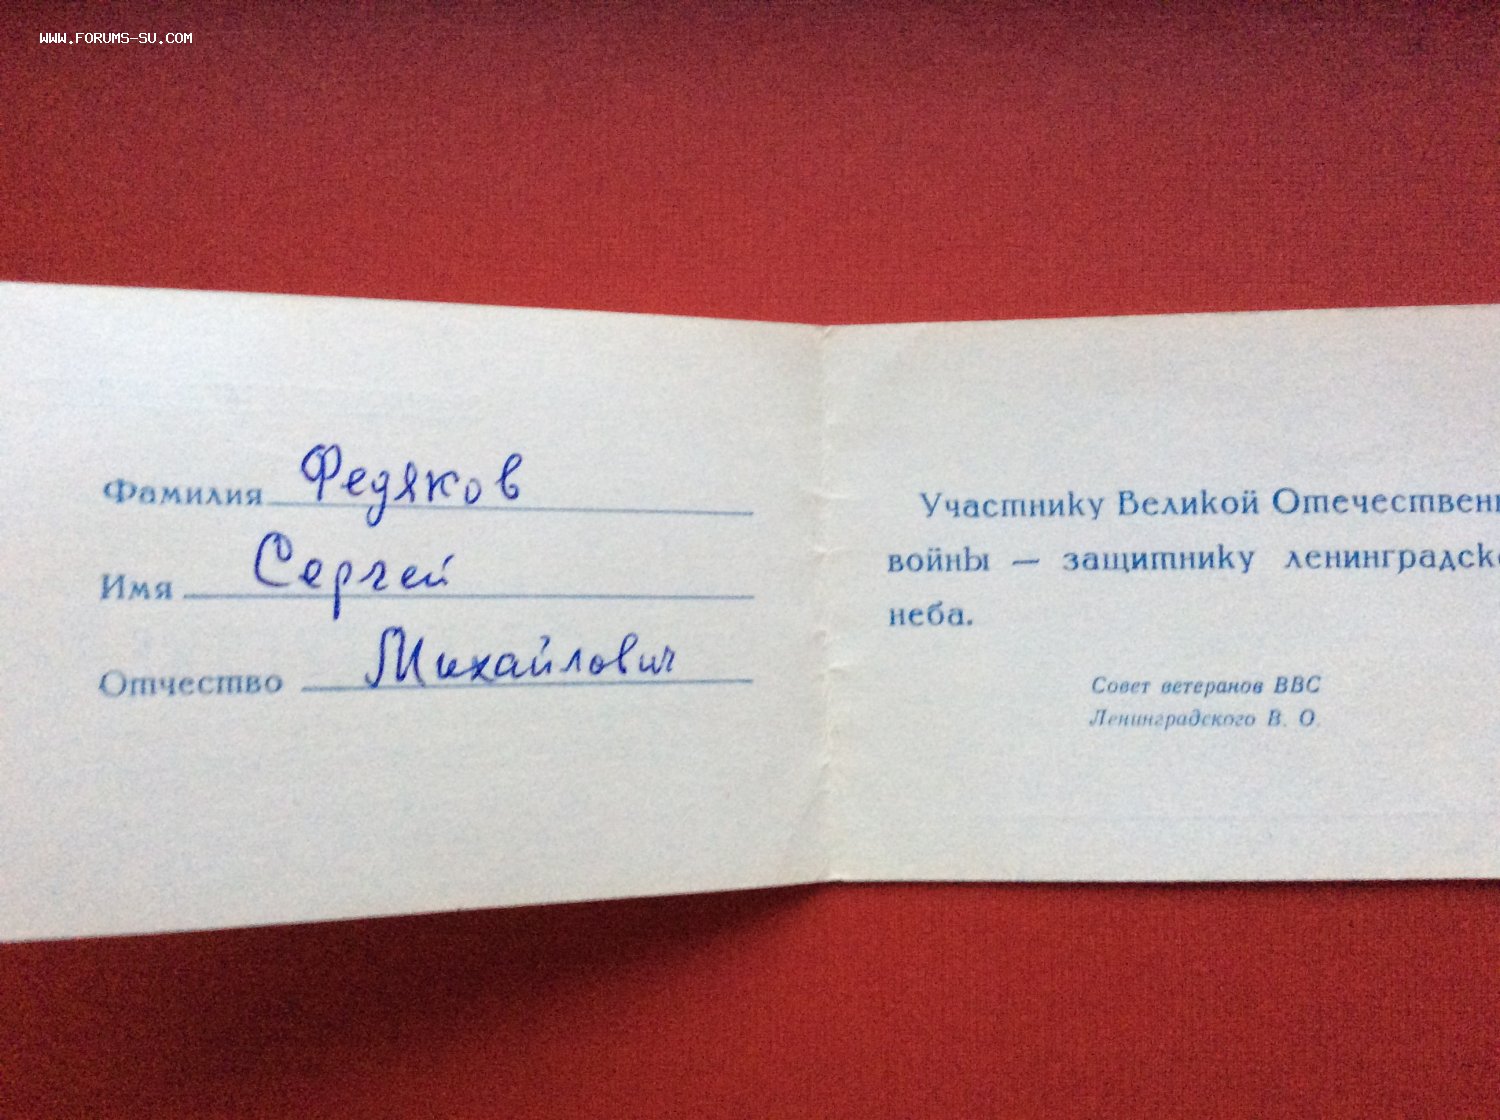 WWW.FORUMS-SU.COM
Фамилия Федяков
Имя Сергей
Отчество Михайлович
Участнику Великой Отечествен
войны — защитнику ленинградск
неба.
Совет ветеранов ВВС
Ленинградского В. О.